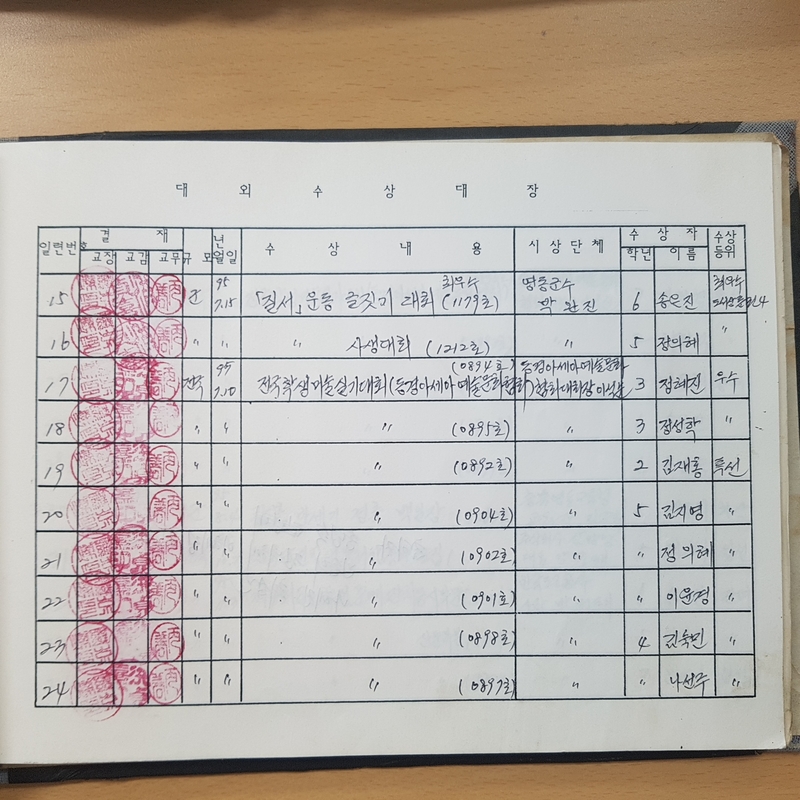 대 외 수 상 대 장
일련번호 결 재 규 모 년월일 수 상 내 용 시 상 단 체 수 상 자 수상등위
교장 교감 교무 학년 이 름
15 군 95 7.15 「질서」운동 글짓기 대회 최우수 (1179호) 영동군수 박완진 6 송은진 최우수
16 〃 〃 〃 사생대회 (1212호) 〃 5 정의혜 〃
17 전국 95 7.10 전국학생미술실기대회 (동경아세아예술문화협회) (0894호) 동경아세아예술문화 3 정혜진 우수
18 〃 〃 〃 (0895호) 〃 3 정성학 〃
19 〃 〃 〃 (0892호) 〃 2 김재홍 특선
20 〃 〃 〃 (0904호) 〃 5 김지영 〃
21 〃 〃 〃 (0902호) 〃 〃 정의혜 〃
22 〃 〃 〃 (0901호) 〃 〃 이윤경 〃
23 〃 〃 〃 (0898호) 〃 4 김욱민 〃
24 〃 〃 〃 (0897호) 〃 〃 나선주 〃